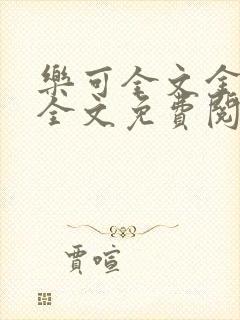 樂可全文全
全文免費閱
賈喧